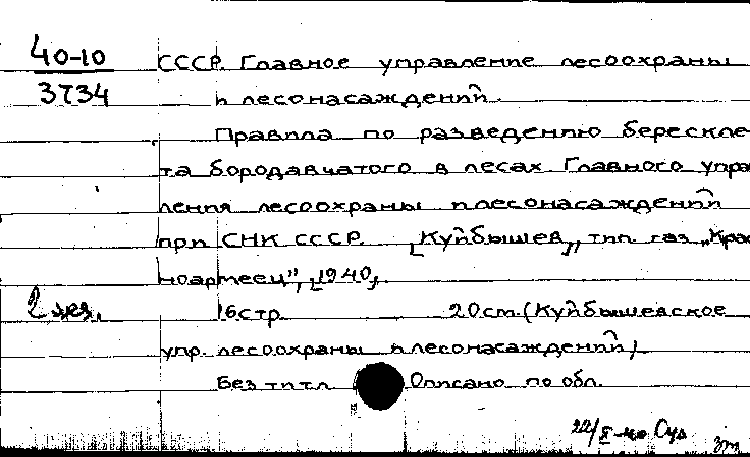 40-10
3734
СССР. Главное управление лесоохраны
и лесонасаждений.
Правила по разведению берескле-
та бородавчатого в лесах Главного управ
ления лесоохраны и лесонасаждений
при СНК СССР. [Куйбышев], тип. газ. „Крас
ноармеец", [1940].
2 экз. 16 стр. 20 см. (Куйбышевское
упр. лесоохраны и лесонасаждений)
Без тит. л. Описано по обл.
22/X-40